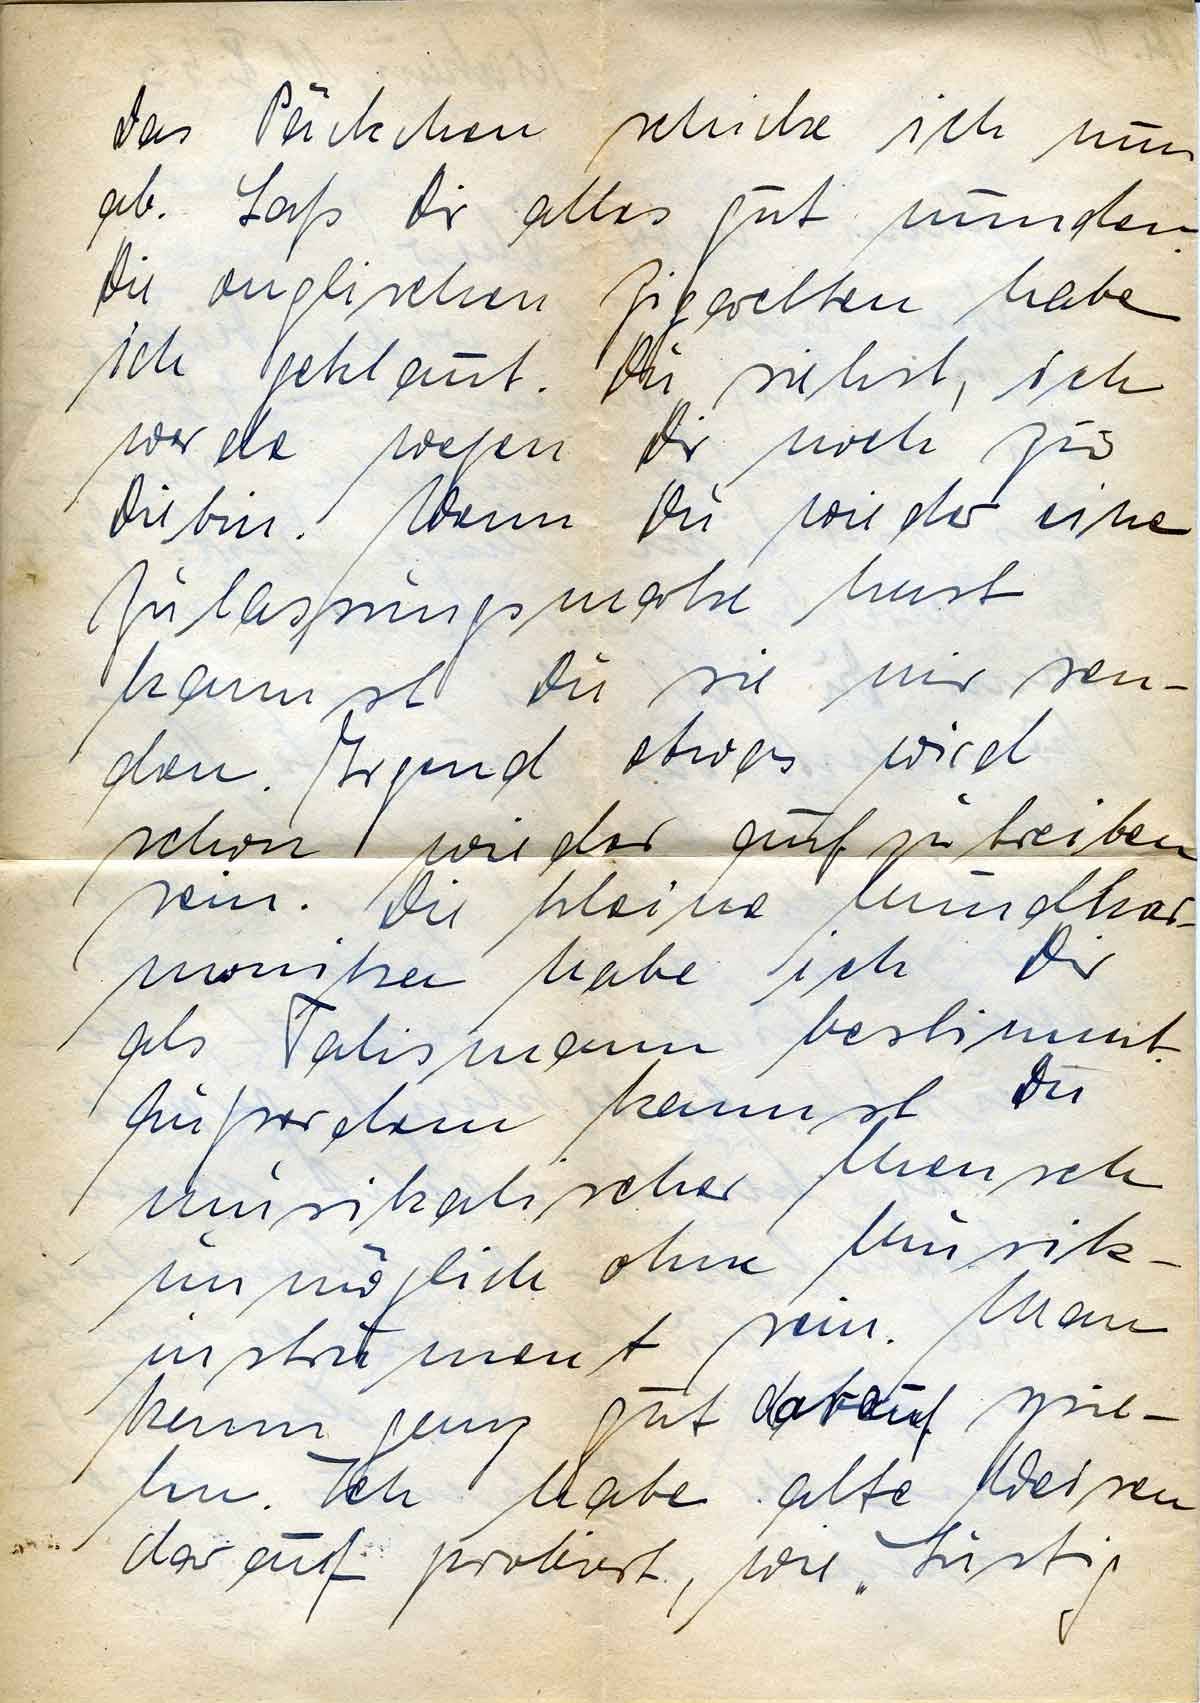 Das Päckchen schicke ich nun
ab. Laß Dir alles gut munden.
Die englischen Zigaretten habe
ich geklaut. Du siehst, ich
werde wegen Dir noch zur
Diebin. Wenn Du wieder eine
Zulassungsmarke hast
kannst Du sie mir sen-
den. Irgend etwas wird
schon wieder aufzutreiben
sein. Die kleine Mundhar-
monika habe ich Dir
als Talismann bestimmt.
Außerdem kannst Du
musikalischer Mensch
unmöglich ohne Musik-
instrument sein. Man
kann ganz gut darauf spie-
len. Ich habe alte Weisen
darauf probiert, wie „Lustig